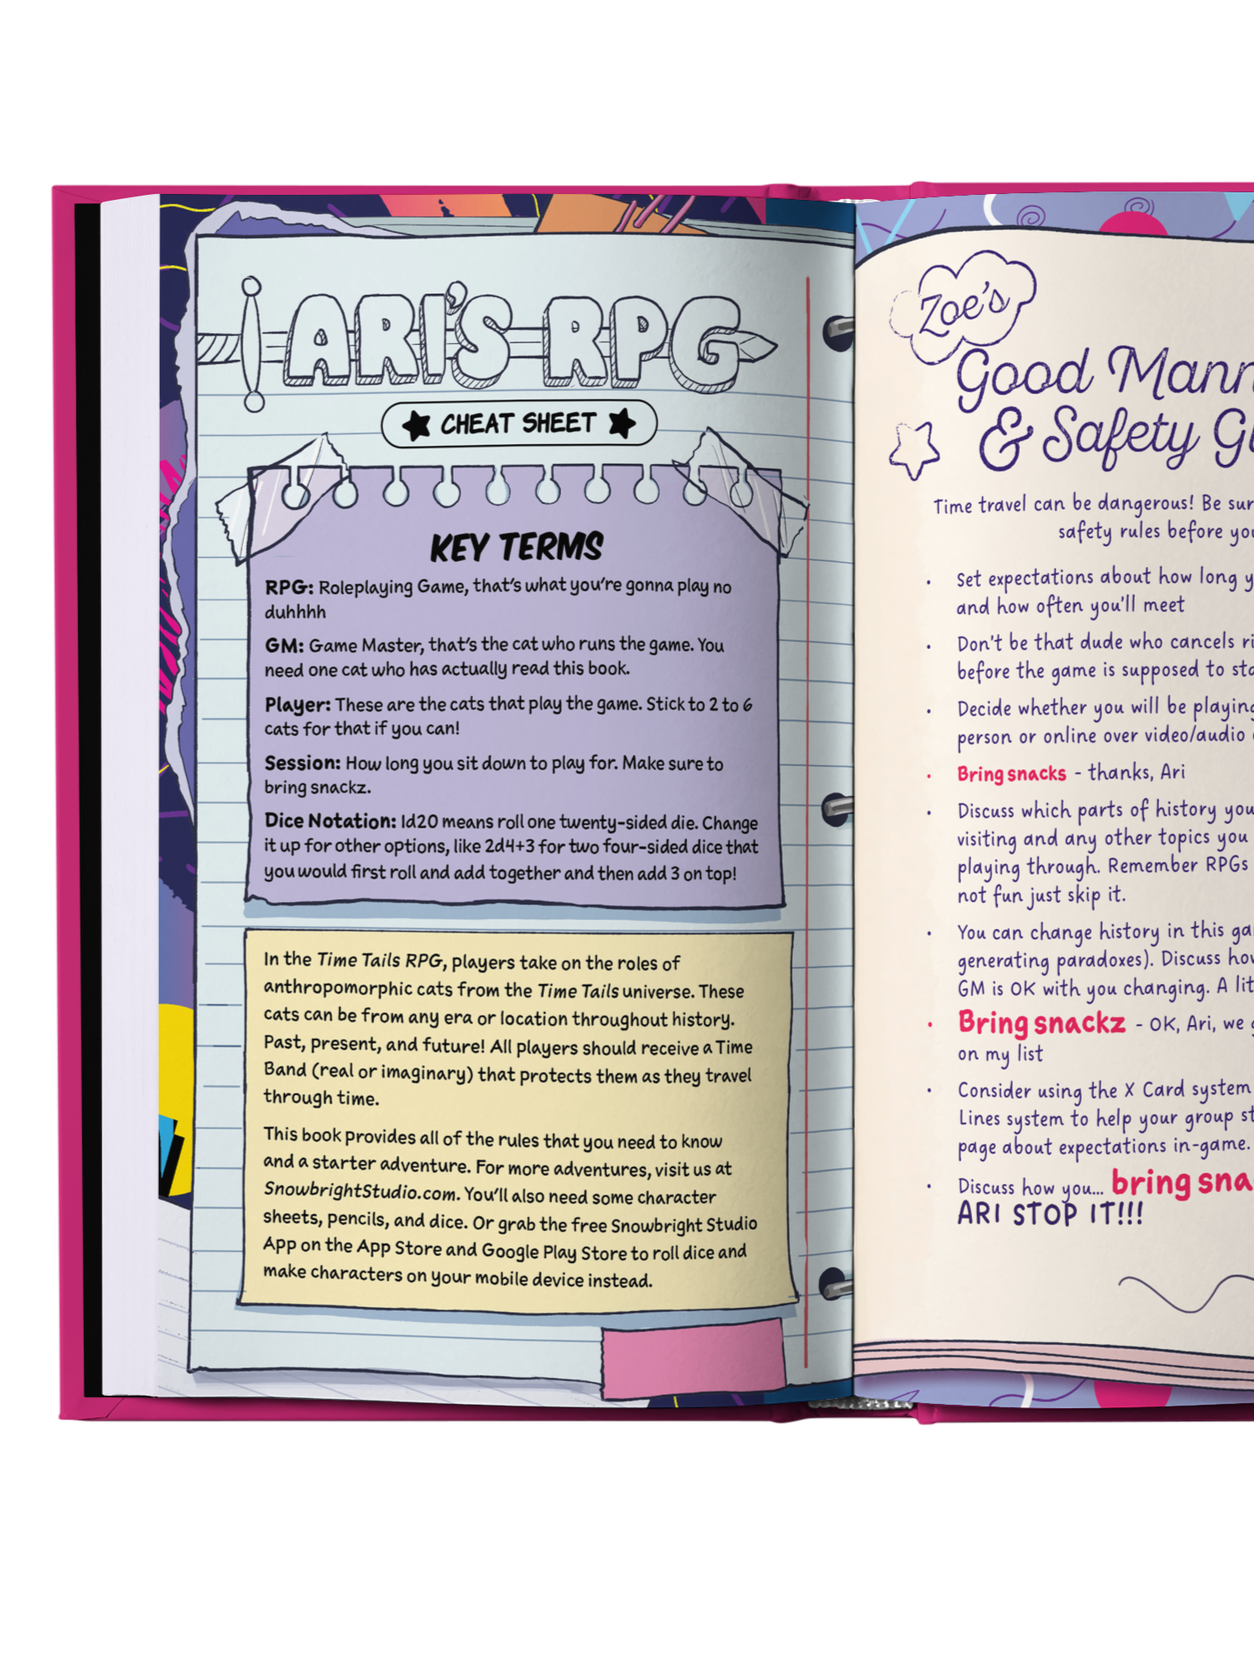 ARI'S RPG
CHEAT SHEET
KEY TERMS
RPG: Roleplaying Game, that's what you're gonna play no
duhhhh
GM: Game Master, that's the cat who runs the game. You
need one cat who has actually read this book.
Player: These are the cats that play the game. Stick to 2 to 6
cats for that if you can!
Session: How long you sit down to play for. Make sure to
bring snackz.
Dice Notation: 1d20 means roll one twenty-sided die. Change
it up for other options, like 2d4+3 for two four-sided dice that
you would first roll and add together and then add 3 on top!
In the Time Tails RPG, players take on the roles of
anthropomorphic cats from the Time Tails universe. These
cats can be from any era or location throughout history.
Past, present, and future! All players should receive a Time
Band (real or imaginary) that protects them as they travel
through time.
This book provides all of the rules that you need to know
and a starter adventure. For more adventures, visit us at
SnowbrightStudio.com. You'll also need some character
sheets, pencils, and dice. Or grab the free Snowbright Studio
App on the App Store and Google Play Store to roll dice and
make characters on your mobile device instead.
Zoe's
Good
& Safety
Time travel can be dangerous! Be
safety rules before
Set expectations about how long
and how often you'll meet
Don't be that dude who cancels
before the game is supposed to
Decide whether you will be playing
person or online over video/audio
Bring snacks - thanks, Ari
Discuss which parts of history you
visiting and any other topics you
playing through. Remember RPGs
not fun just skip it.
You can change history in this
generating paradoxes). Discuss
GM is OK with you changing. A
Bring snackz - OK, Ari, we
on my list
Consider using the X Card system
Lines system to help your group
page about expectations in-game.
Discuss how you... bring
ARI STOP IT!!!